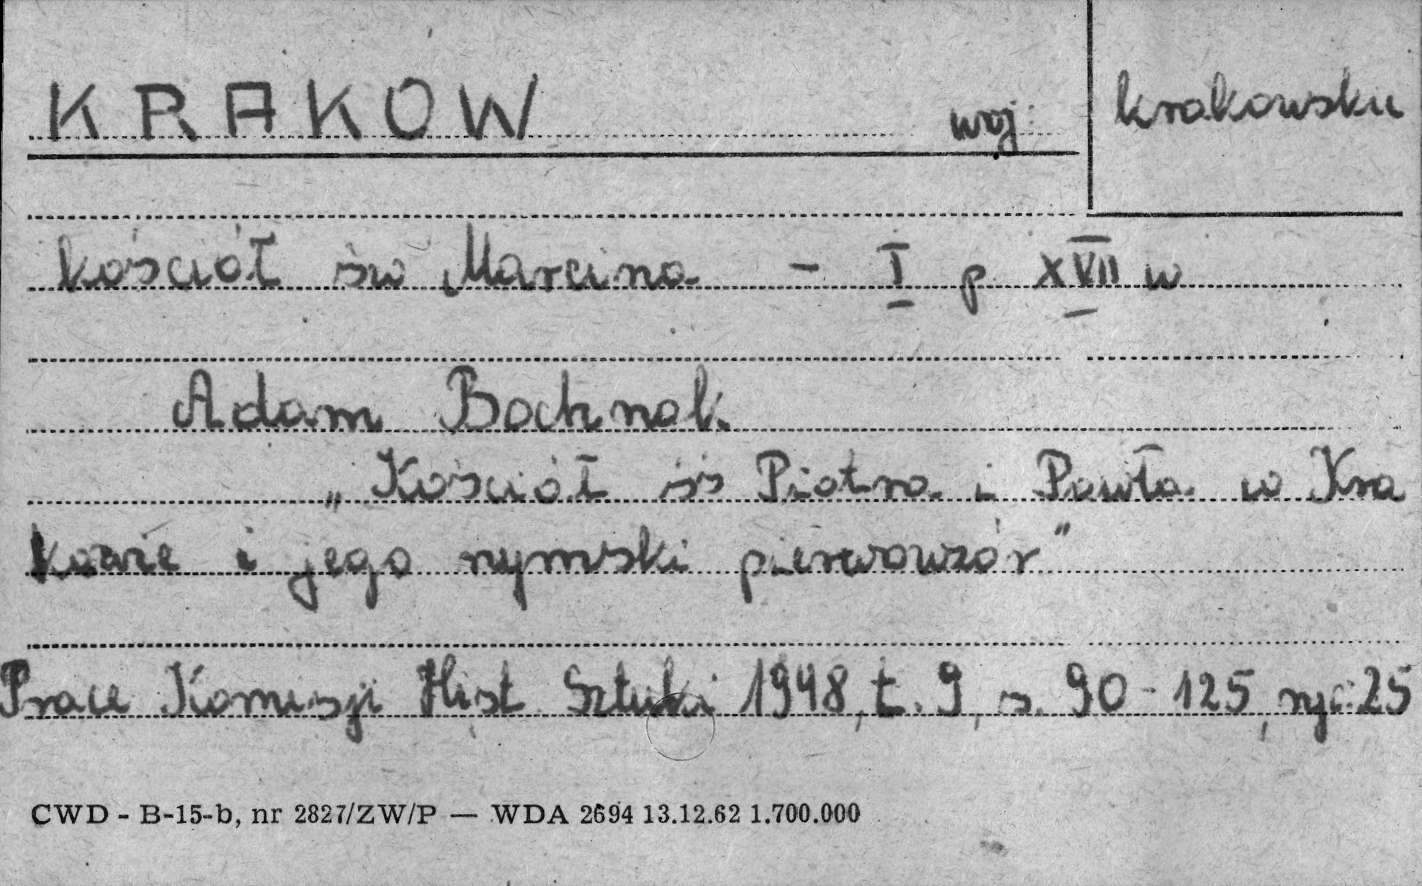 KRAKOW woj. krakowskie
kościół św Marcina - I p XVII w
Adam Bochnak
„Kościół śś Piotra i Pawła w Kra
kowie i jego rzymski pierwowzór"
Prace Komisji Hist Sztuki 1948, t. 9, s. 90-125, ryc. 25
CWD - B-15-b, nr 2827/ZW/P — WDA 2694 13.12.62 1.700.000